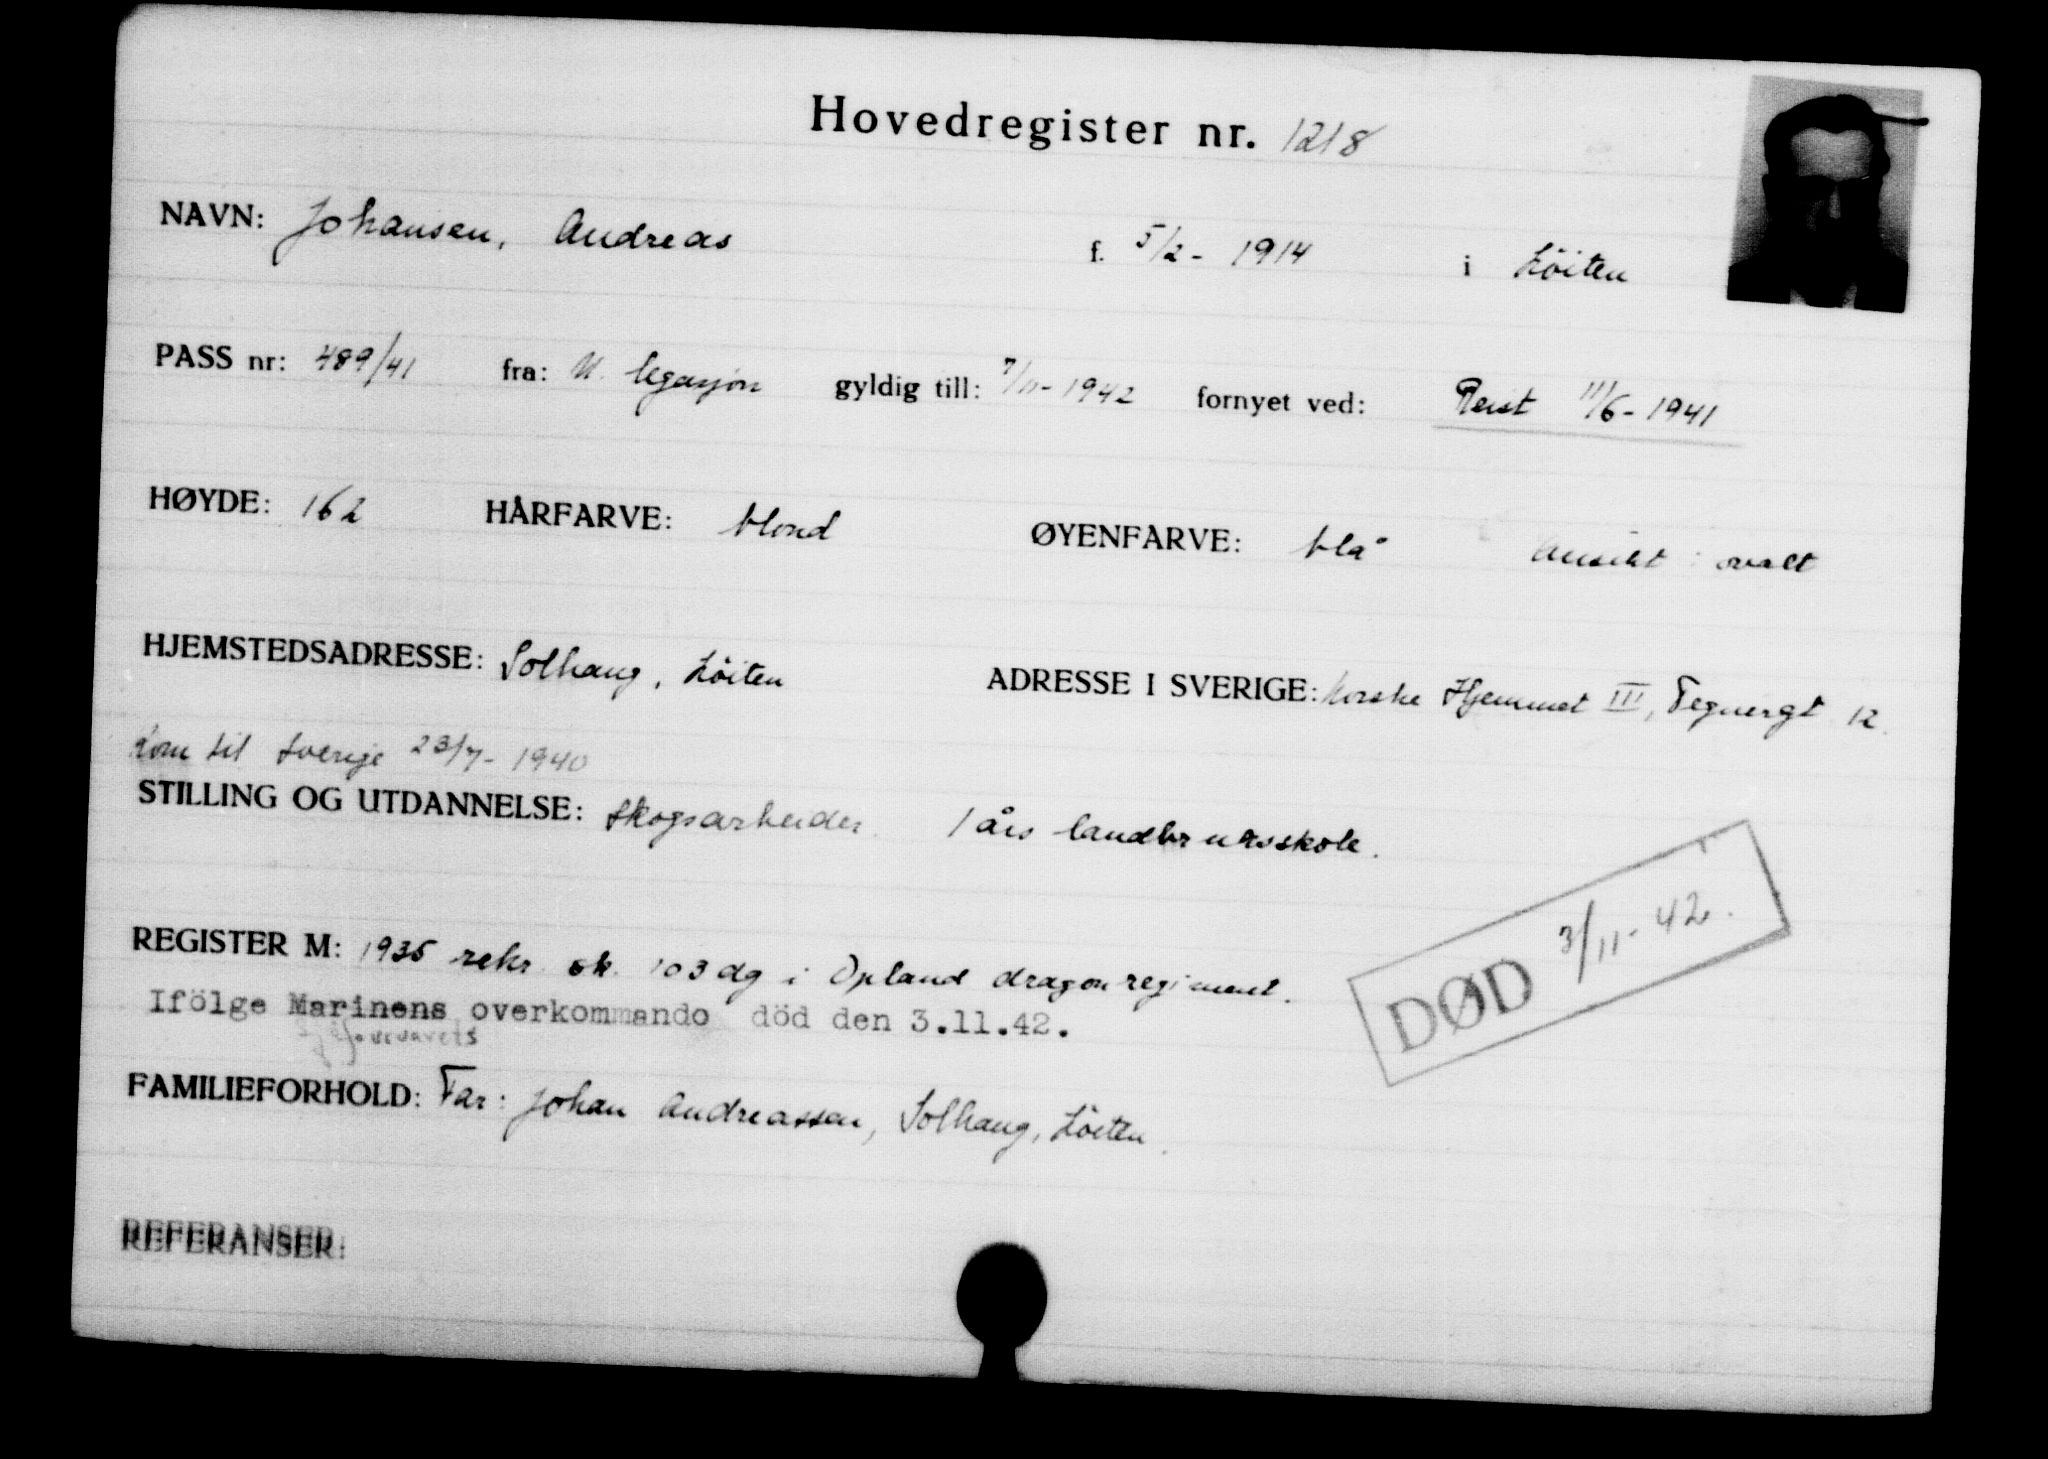 Hovedregister nr. 1218
NAVN: Johansen, Andreas f. 5/2- 1914 i Löiten
PASS nr: 489/41 fra: N. legasjon gyldig till: 7/11- 1942 fornyet ved: Reist 11/6- 1941
HØYDE: 162 HÅRFARVE: blond ØYENFARVE: blå Ansikt: ovalt
HJEMSTEDSADRESSE: Solhaug, Löiten ADRESSE I SVERIGE: Norske Hjemmet III, Tegnergt 12.
Kom til Sverige 23/7- 1940
STILLING OG UTDANNELSE: Skogsarbeider. 1 års landbruksskole.
DØD 3/11- 42.
REGISTER M: 1935 rekr. sk. 103 dg i Opland dragonregiment.
Ifölge Marinens overkommando död den 3.11.42.
Forsvarets
FAMILIEFORHOLD: Far: Johan Andreassen, Solhaug, Löiten.
REFERANSER: